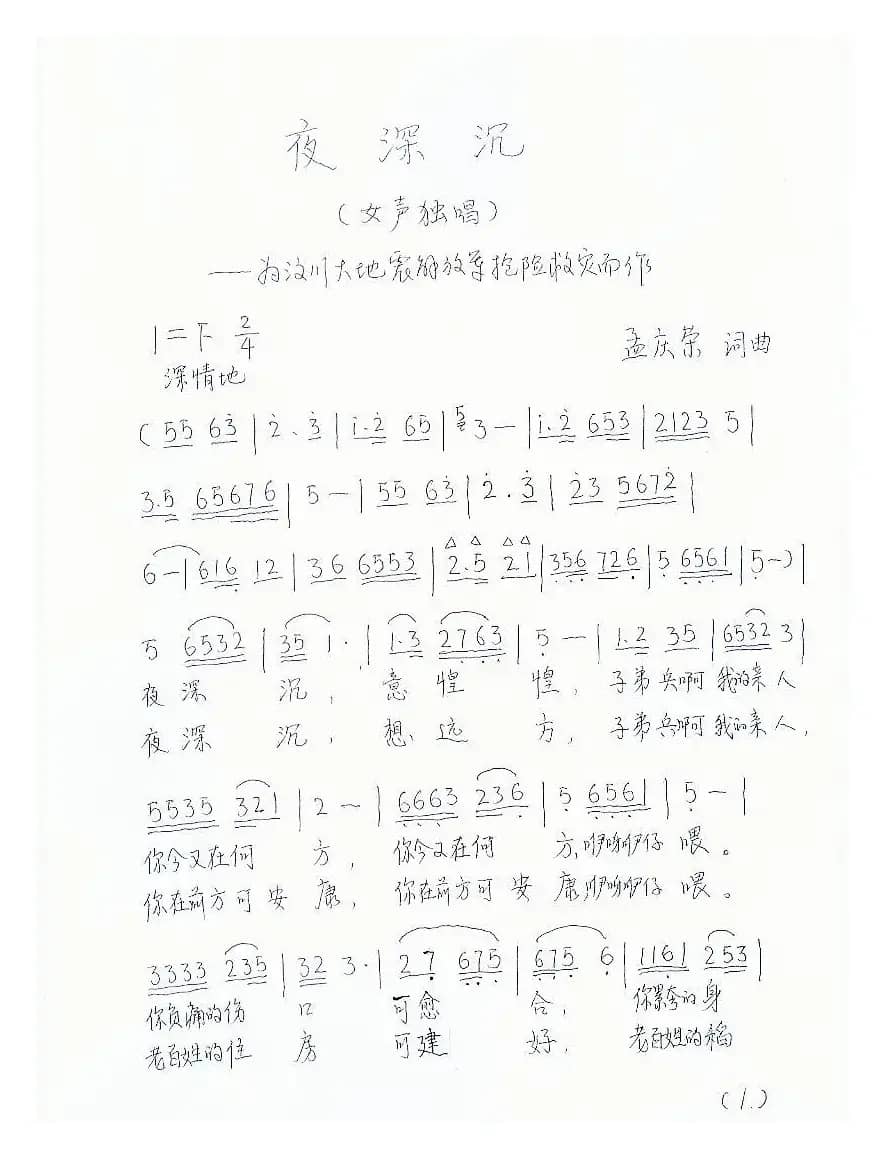 夜深沉
（女声独唱）
——为汶川大地震解放军抢险救灾而作
1=F 2/4
孟庆荣 词曲
深情地
( 55 63̇ | 2̇. 3̇ | 1̇.2̇ 65 | 3 — | 1̇.2̇ 653 | 2123 5 |
3.5 65676 | 5 — | 55 63̇ | 2̇. 3̇ | 2̇3 5672̇ |
6 — | 616 12 | 36 6553 | 2.5 21 | 356 726 | 5 6561 | 5 — ) |
5 6532 | 35 1. | 1.3 2763 | 5 — | 1.2 35 | 6532 3 |
夜深沉，意惶惶，子弟兵啊我的亲人
夜深沉，想远方，子弟兵啊我的亲人，
5535 321 | 2 — | 6663 236 | 5 6561 | 5 — |
你今又在何方，你今又在何方，咿呀咿仔喂。
你在前方可安康，你在前方可安康，咿呀咿仔喂。
3333 235 | 32 3. | 27 675 | 675 6 | 1161 253 |
你负痛的伤口可愈合，你累夸的身
老百姓的住房可建好，老百姓的稻
(1.)